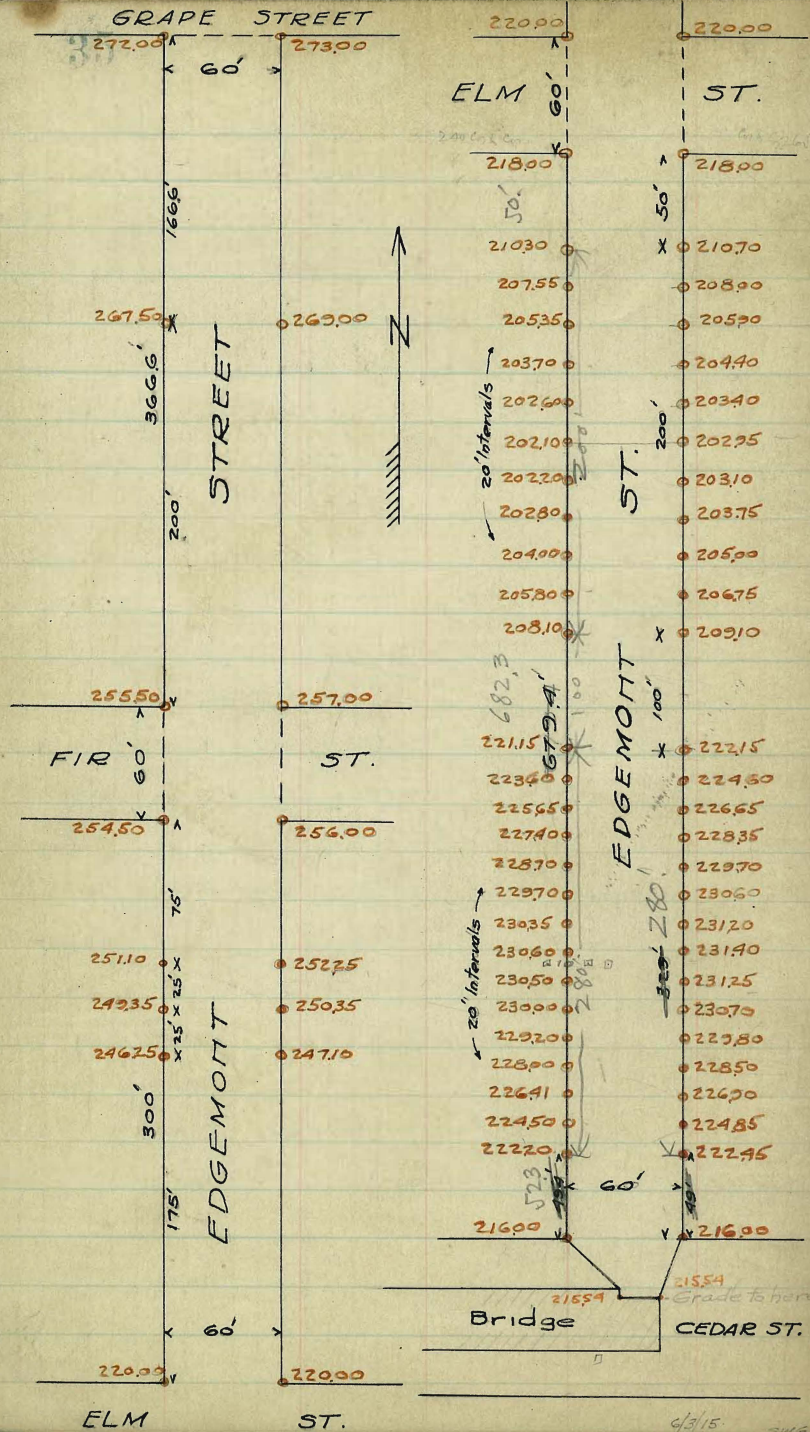 GRAPE STREET
272.00 273.00
60'
166.6'
267.50 269.00
366.6'
STREET
200'
255.50 257.00
FIR 60' ST.
254.50 256.00
75'
251.10 252.25
25'
249.35 250.35
25'
246.25 247.10
300'
EDGEMONT
175'
60'
220.00 220.00
ELM ST.
N
220.00 220.00
ELM 60' ST.
218.00 218.00
50' 50'
210.30 210.70
207.55 208.00
205.35 205.90
203.70 204.40
202.60 203.40
202.10 202.95
202.20 203.10
202.80 203.75
204.00 205.00
205.80 206.75
208.10 209.10
20' Intervals
200' 200'
ST.
682.3
679.4'
100 100'
EDGEMONT
221.15 222.15
223.60 224.60
225.65 226.65
227.40 228.35
228.70 229.70
229.70 230.60
230.35 231.20
230.60 231.40
230.50 231.25
230.00 230.70
229.20 229.80
228.00 228.50
226.41 226.90
224.50 224.85
222.20 222.95
20' Intervals
280' 280'
329'
52.3
60'
49'
216.00 216.00
215.54 215.54
Grade to here
Bridge CEDAR ST.
6/3/15